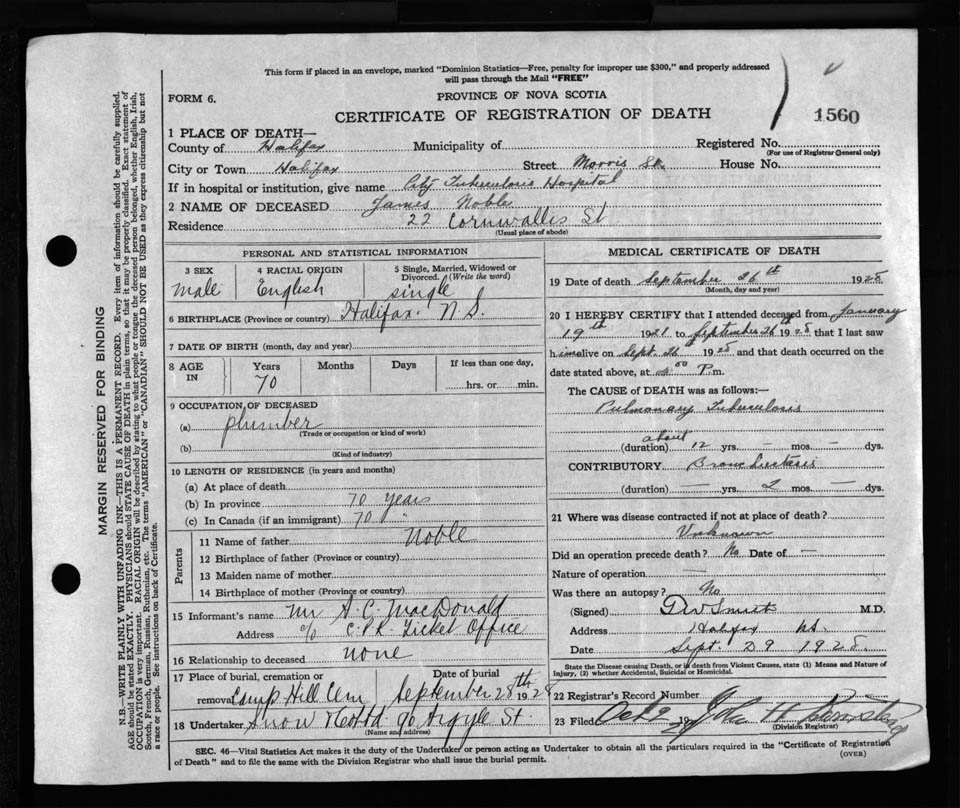 This form if placed in an envelope, marked "Dominion Statistics—Free, penalty for improper use $300," and properly addressed
will pass through the Mail "FREE"
FORM 6.
PROVINCE OF NOVA SCOTIA
CERTIFICATE OF REGISTRATION OF DEATH
1560
1 PLACE OF DEATH—
County of Halifax Municipality of Registered No.
(For use of Registrar General only)
City or Town Halifax Street Morris St. House No.
If in hospital or institution, give name City Tuberculosis Hospital
2 NAME OF DECEASED James Noble
Residence 22 Cornwallis St
(Usual place of abode)
PERSONAL AND STATISTICAL INFORMATION
3 SEX 4 RACIAL ORIGIN 5 Single, Married, Widowed or
Divorced. (Write the word)
male English single
6 BIRTHPLACE (Province or country) Halifax. N.S.
7 DATE OF BIRTH (month, day and year)
8 AGE IN Years Months Days If less than one day,
70 hrs. or min.
9 OCCUPATION OF DECEASED
(a) plumber
(Trade or occupation or kind of work)
(b)
(Kind of industry)
10 LENGTH OF RESIDENCE (in years and months)
(a) At place of death
(b) In province 70 years
(c) In Canada (if an immigrant) 70 "
Parents
11 Name of father Noble
12 Birthplace of father (Province or country)
13 Maiden name of mother
14 Birthplace of mother (Province or country)
15 Informant's name Mr A. C. MacDonald
Address c/o C.P.R. Ticket Office
16 Relationship to deceased none
17 Place of burial, cremation or removal Date of burial
Camp Hill Cem September 28th 1928
18 Undertaker Snow & Co Ltd 90 Argyle St.
(Name and address)
MEDICAL CERTIFICATE OF DEATH
19 Date of death September 26th 1928
(Month, day and year)
20 I HEREBY CERTIFY that I attended deceased from January
19th 1921 to September 26th 1928 that I last saw
him alive on Sept. 26 1928 and that death occurred on the
date stated above, at P.m.
The CAUSE of DEATH was as follows:—
Pulmonary Tuberculosis
about
(duration) 12 yrs. — mos. — dys.
CONTRIBUTORY Bronchiectasis
(duration) — yrs. 2 mos. — dys.
21 Where was disease contracted if not at place of death?
Unknown
Did an operation precede death? No Date of —
Nature of operation —
Was there an autopsy? No
(Signed) M.D.
Address Halifax NS.
Date Sept. 29 1928.
State the Disease causing Death, or in death from Violent Causes, state (1) Means and Nature of
Injury, (2) whether Accidental, Suicidal or Homicidal.
22 Registrar's Record Number
23 Filed Oct 2 19 28 John H
(Division Registrar)
SEC. 46—Vital Statistics Act makes it the duty of the Undertaker or person acting as Undertaker to obtain all the particulars required in the "Certificate of Registration
of Death" and to file the same with the Division Registrar who shall issue the burial permit.
(OVER)
MARGIN RESERVED FOR BINDING
N.B.—WRITE PLAINLY WITH UNFADING INK—THIS IS A PERMANENT RECORD. Every item of information should be carefully supplied.
AGE should be stated EXACTLY. PHYSICIANS should STATE CAUSE OF DEATH in plain terms, so that it may be properly classified. Exact statement of
OCCUPATION is very important. RACIAL ORIGIN will be described by stating to what people or tongue the deceased person belonged, whether English, Irish,
Scotch, French, German, Russian, Ruthenian, etc. The terms "AMERICAN" or "CANADIAN" SHOULD NOT BE USED as they express citizenship but not
a race or people. See instructions on back of Certificate.